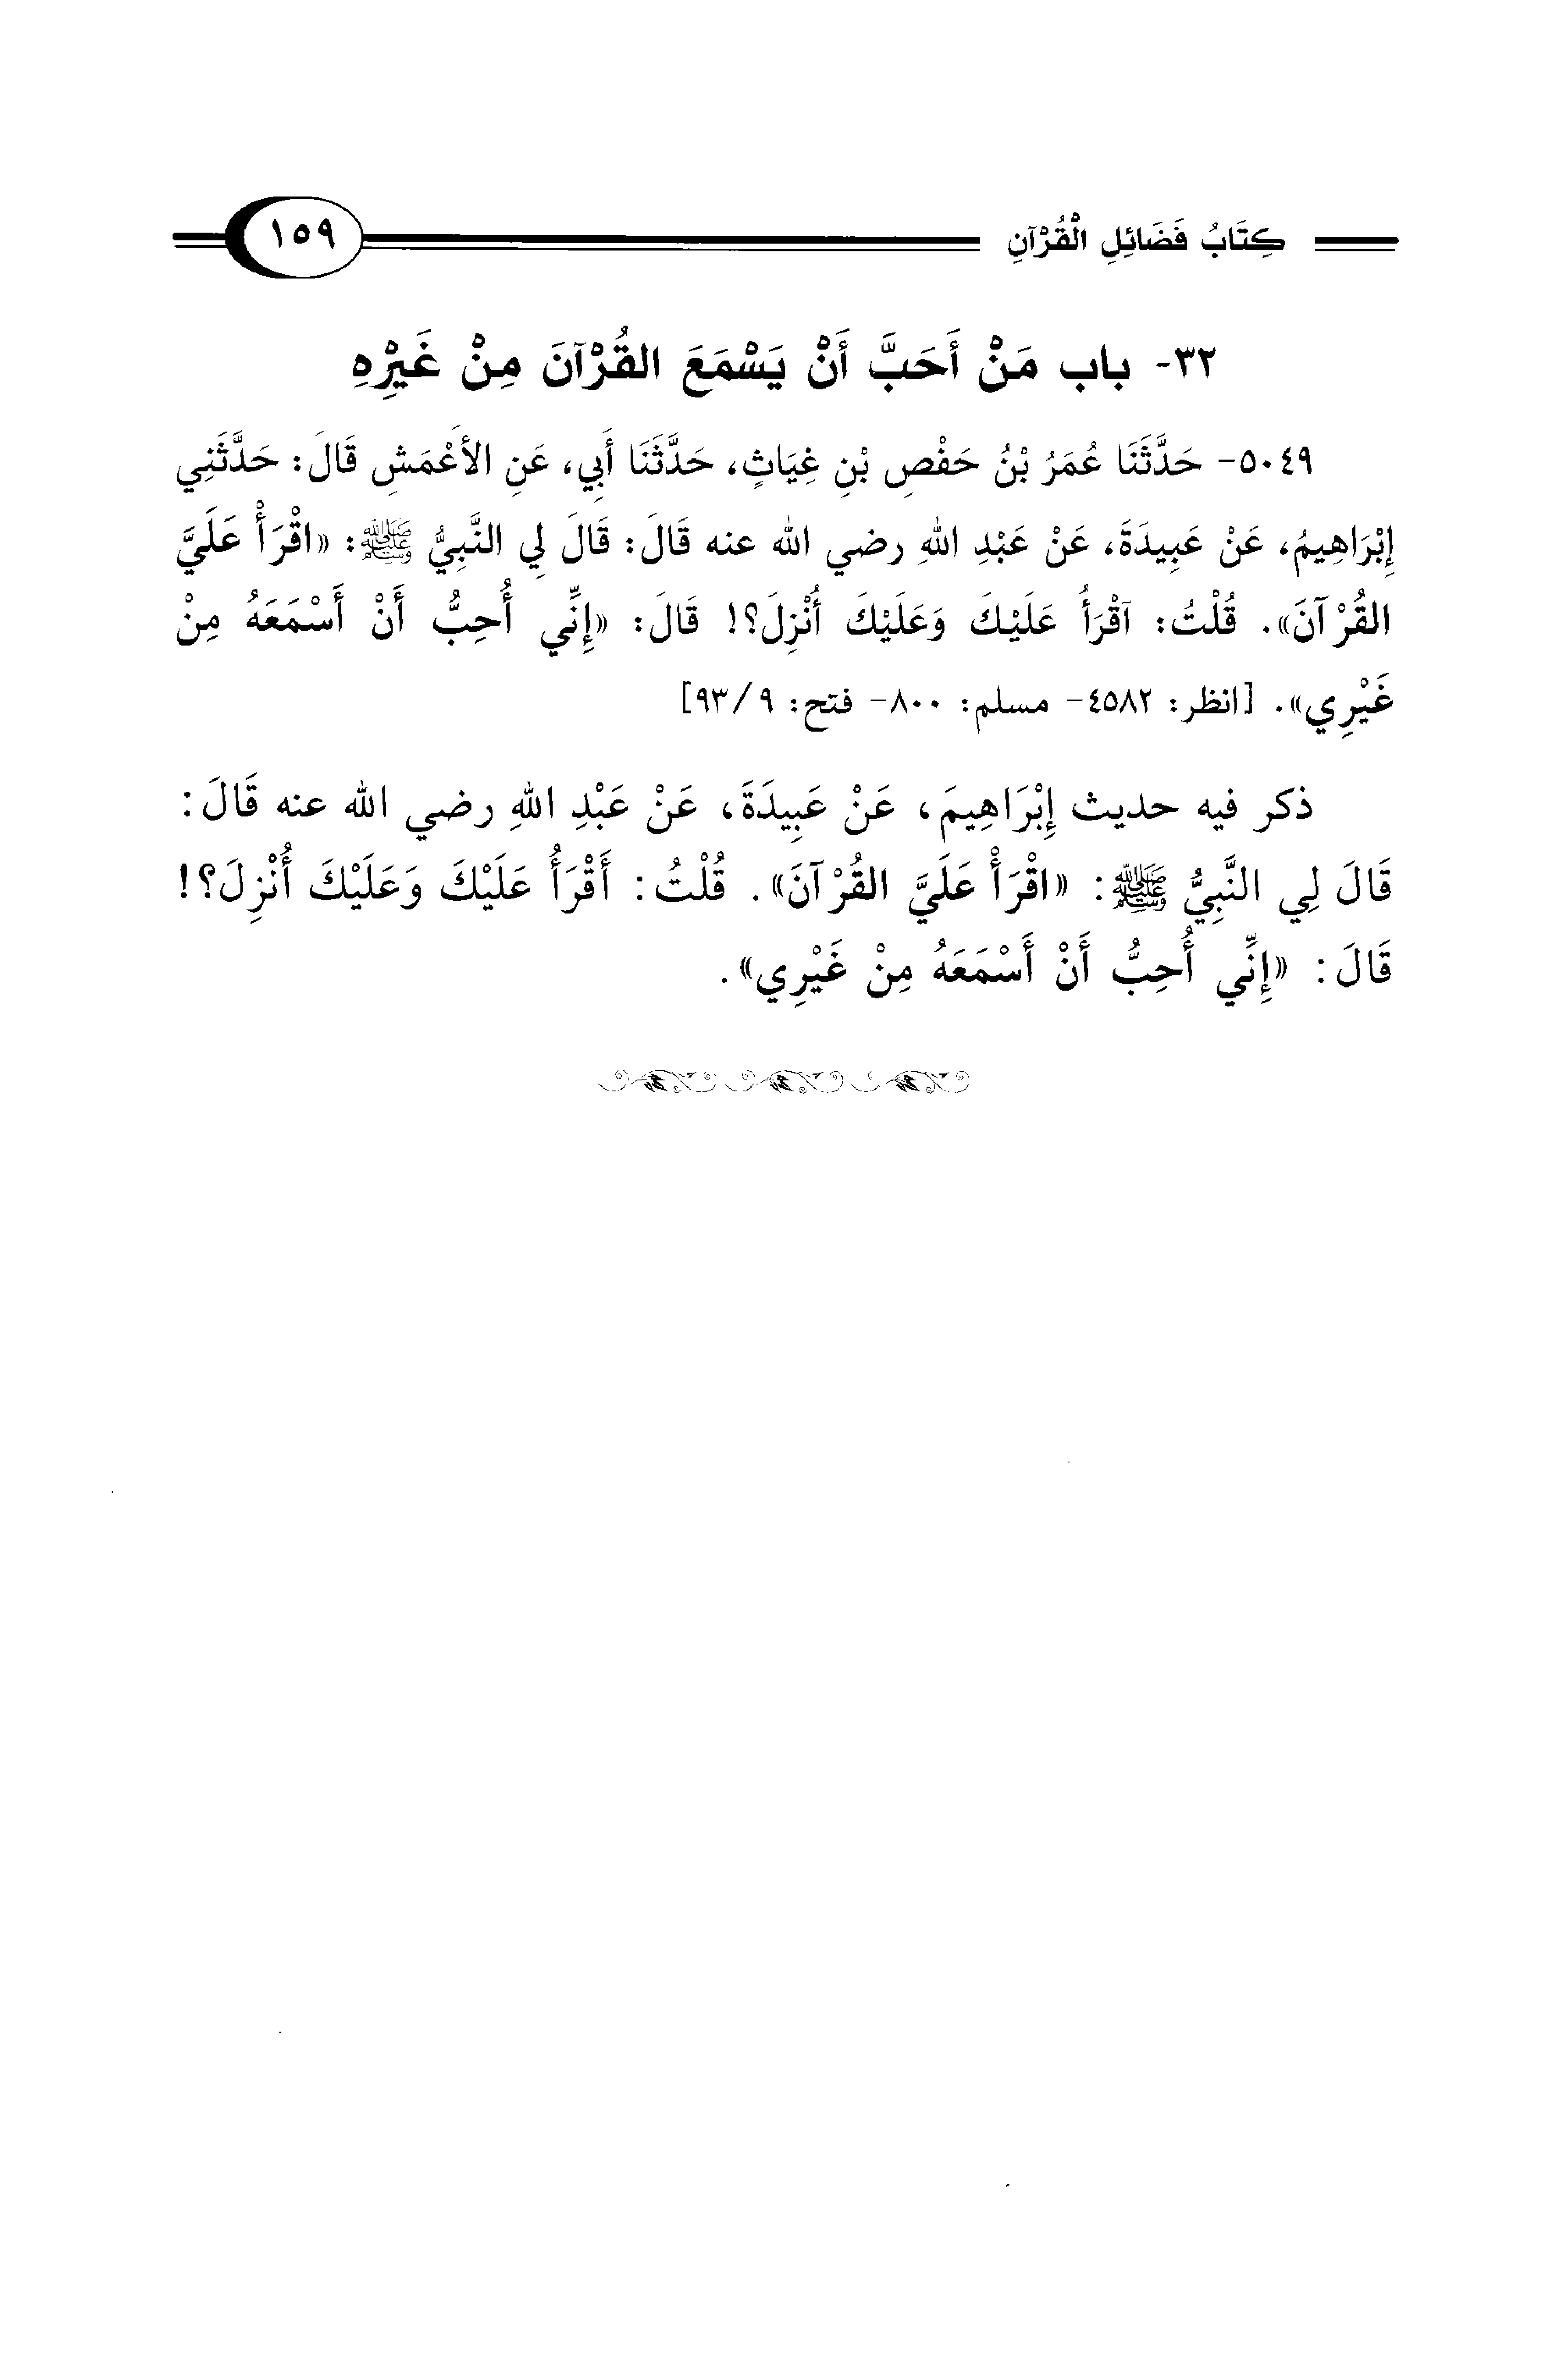 كِتَابُ فَضَائِلِ الْقُرْآنِ ١٥٩
٣٢- باب مَنْ أَحَبَّ أَنْ يَسْمَعَ القُرْآنَ مِنْ غَيْرِهِ
٥٠٤٩- حَدَّثَنَا عُمَرُ بْنُ حَفْصِ بْنِ غِيَاثٍ، حَدَّثَنَا أَبِي، عَنِ الأَعْمَشِ قَالَ: حَدَّثَنِي
إِبْرَاهِيمُ، عَنْ عَبِيدَةَ، عَنْ عَبْدِ اللهِ رضي الله عنه قَالَ: قَالَ لِي النَّبِيُّ ﷺ: «اقْرَأْ عَلَيَّ
القُرْآنَ». قُلْتُ: آقْرَأُ عَلَيْكَ وَعَلَيْكَ أُنْزِلَ؟! قَالَ: «إِنِّي أُحِبُّ أَنْ أَسْمَعَهُ مِنْ
غَيْرِي». [انظر: ٤٥٨٢- مسلم: ٨٠٠- فتح: ٩/ ٩٣]
ذكر فيه حديث إِبْرَاهِيمَ، عَنْ عَبِيدَةَ، عَنْ عَبْدِ اللهِ رضي الله عنه قَالَ:
قَالَ لِي النَّبِيُّ ﷺ: «اقْرَأْ عَلَيَّ القُرْآنَ». قُلْتُ: أَقْرَأُ عَلَيْكَ وَعَلَيْكَ أُنْزِلَ؟!
قَالَ: «إِنِّي أُحِبُّ أَنْ أَسْمَعَهُ مِنْ غَيْرِي».